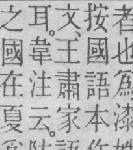 者也爲漆
按國語本
文王肅家
耳。韋注云。
之國在夏